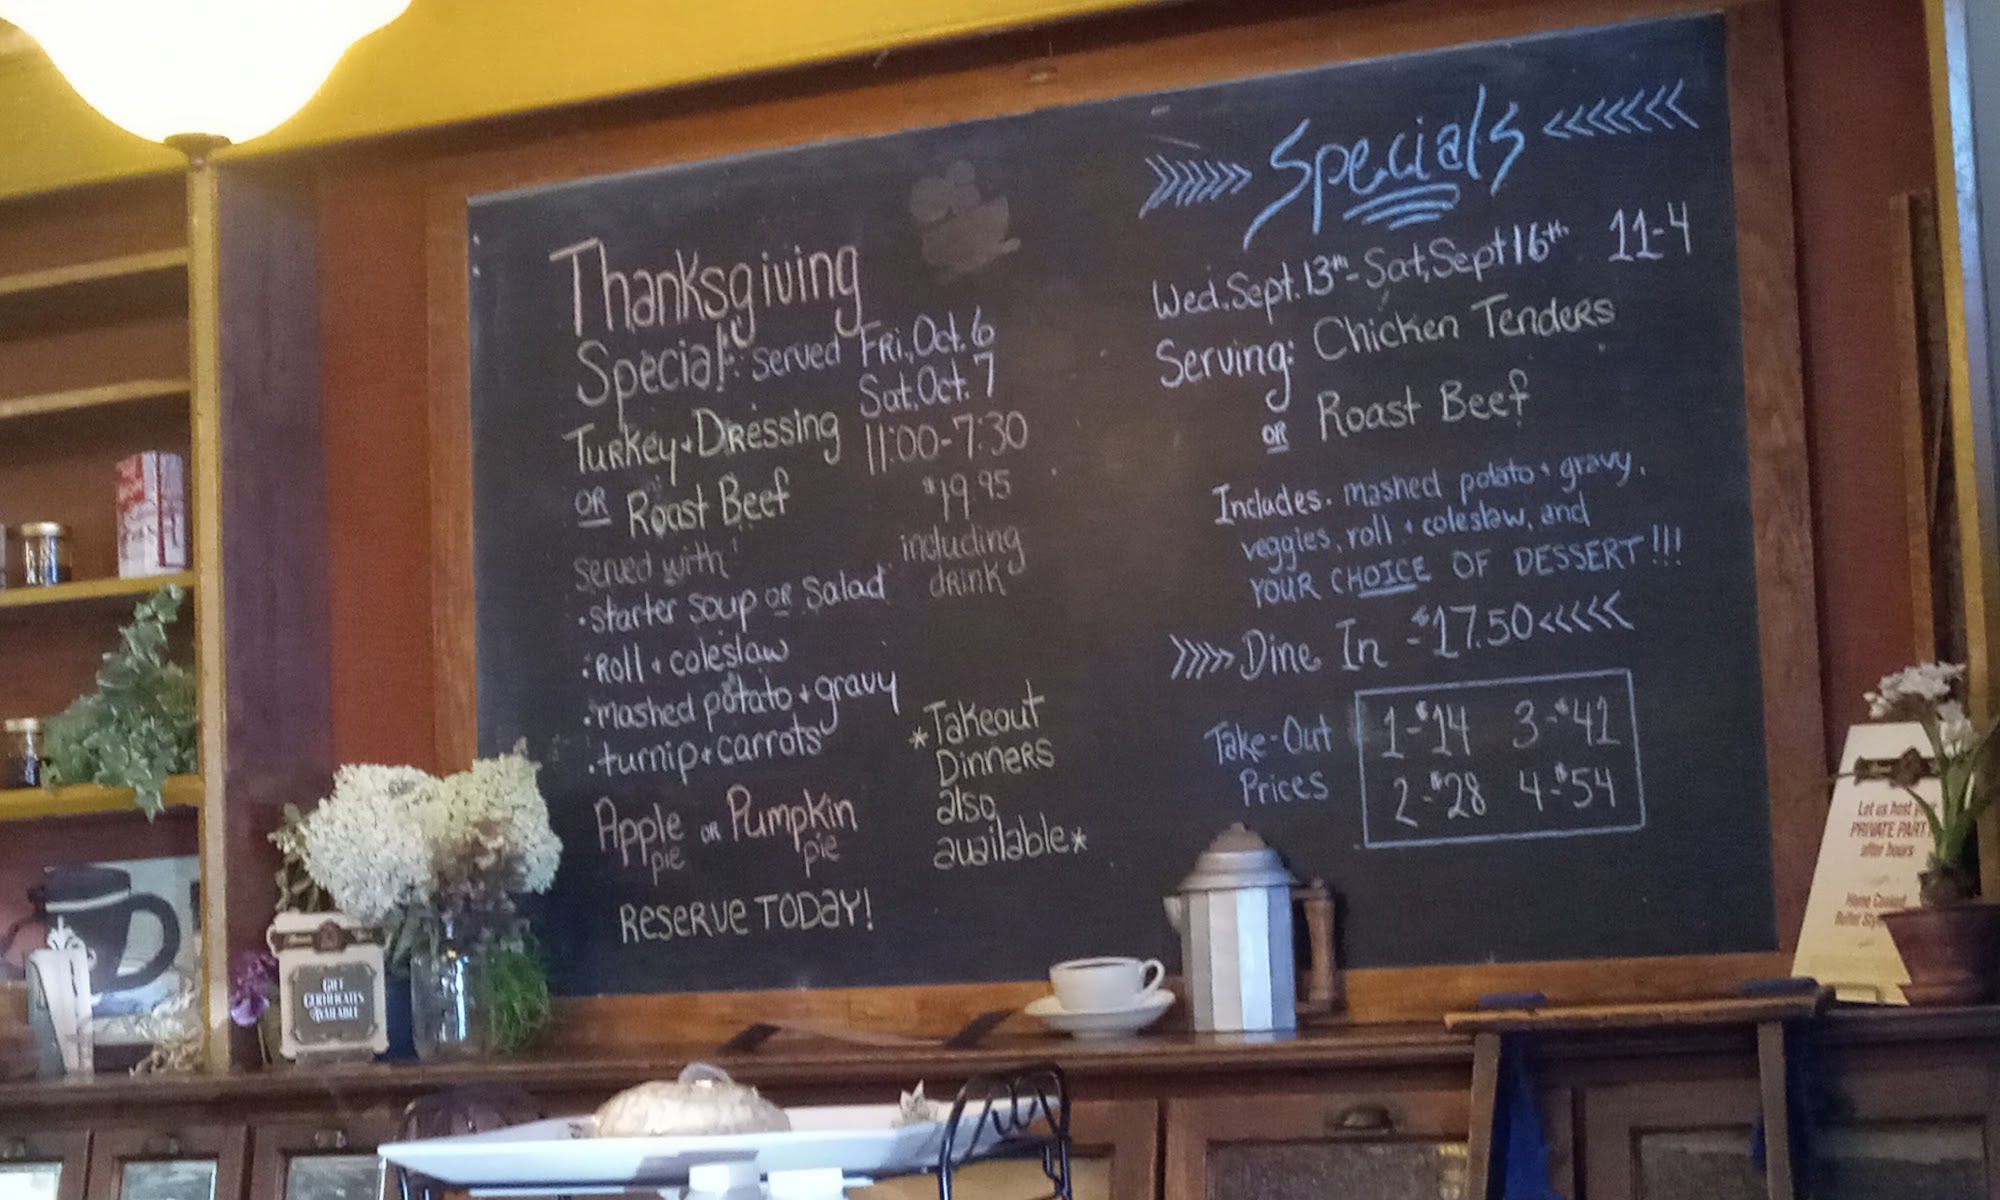 Thanksgiving
Special: served Fri., Oct. 6
Sat. Oct. 7
Turkey + Dressing
11:00-7:30
OR Roast Beef
$19.95
including
drink
served with:
• starter soup OR salad
• Roll + coleslaw
• mashed potato + gravy
• turnip + carrots
Apple pie OR Pumpkin pie
RESERVE TODAY!
*Takeout
Dinners
also
available*
>>>>>> Specials <<<<<<<
Wed. Sept. 13th - Sat, Sept 16th 11-4
Serving: Chicken Tenders
OR Roast Beef
Includes. mashed potato + gravy,
veggies, roll + coleslaw, and
YOUR CHOICE OF DESSERT!!!
>>>>> Dine In - $17.50 <<<<<
Take-Out
Prices
1-$14 3-$41
2-$28 4-$54
GIFT
CERTIFICATES
AVAILABLE
Let us host
PRIVATE PART
after hours
Home Cooked
Buffet